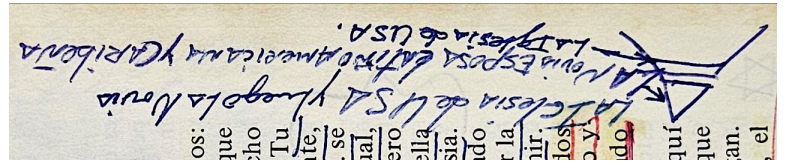 LA Iglesia de USA y luego La Novia
LA Novia ESPOSA LATINOAMERICANA Y CARIBEÑA
LA Iglesia de USA.
os:
que
cho
Tu
te,
se
ual,
ero
ella
sia.
ado
r la
nir.
dos
o y
do
quí
que
an.
el